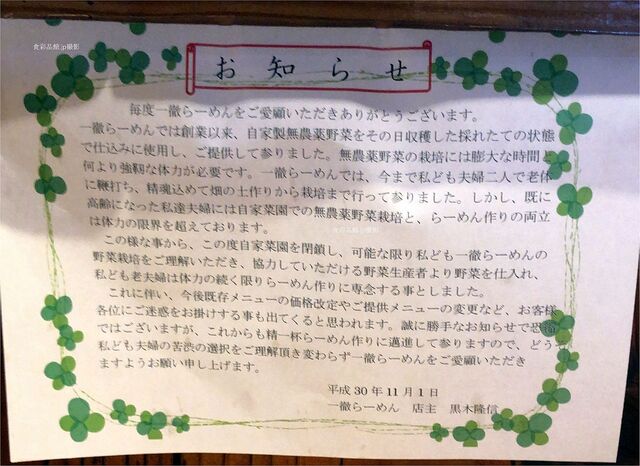 食彩品館.jp撮影
お知らせ
毎度一徹らーめんをご愛顧いただきありがとうございます。
一徹らーめんでは創業以来、自家製無農薬野菜をその日収穫した採れたての状態
で仕込みに使用し、ご提供して参りました。無農薬野菜の栽培には膨大な時間と
何より強靭な体力が必要です。一徹らーめんでは、今まで私ども夫婦二人で老体
に鞭打ち、精魂込めて畑の土作りから栽培まで行って参りました。しかし、既に
高齢になった私達夫婦には自家菜園での無農薬野菜栽培と、らーめん作りの両立
は体力の限界を超えております。
食彩品館.jp撮影
この様な事から、この度自家菜園を閉鎖し、可能な限り私ども一徹らーめんの
野菜栽培をご理解いただき、協力していただける野菜生産者より野菜を仕入れ、
私ども老夫婦は体力の続く限りらーめん作りに専念する事としました。
これに伴い、今後既存メニューの価格改定やご提供メニューの変更など、お客様
各位にご迷惑をお掛けする事も出てくると思われます。誠に勝手なお知らせで恐縮
ではございますが、これからも精一杯らーめん作りに邁進して参りますので、どうぞ
私ども夫婦の苦渋の選択をご理解頂き変わらず一徹らーめんをご愛顧いただき
ますようお願い申し上げます。
平成30年11月1日
一徹らーめん 店主 黒木隆信